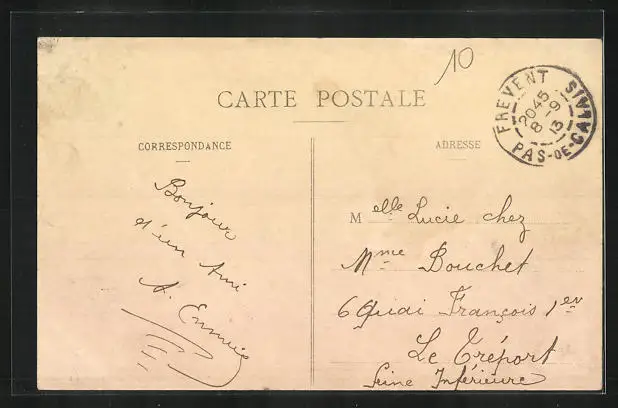 10
CARTE POSTALE
FREVENT
20 45
8 - 9
13
PAS-DE-CALAIS
CORRESPONDANCE
ADRESSE
Bonjour
d'un Ami
A.
Melle Lucie chez
Mme Bouchet
6 Quai François 1er
Le Tréport
Seine Inférieure